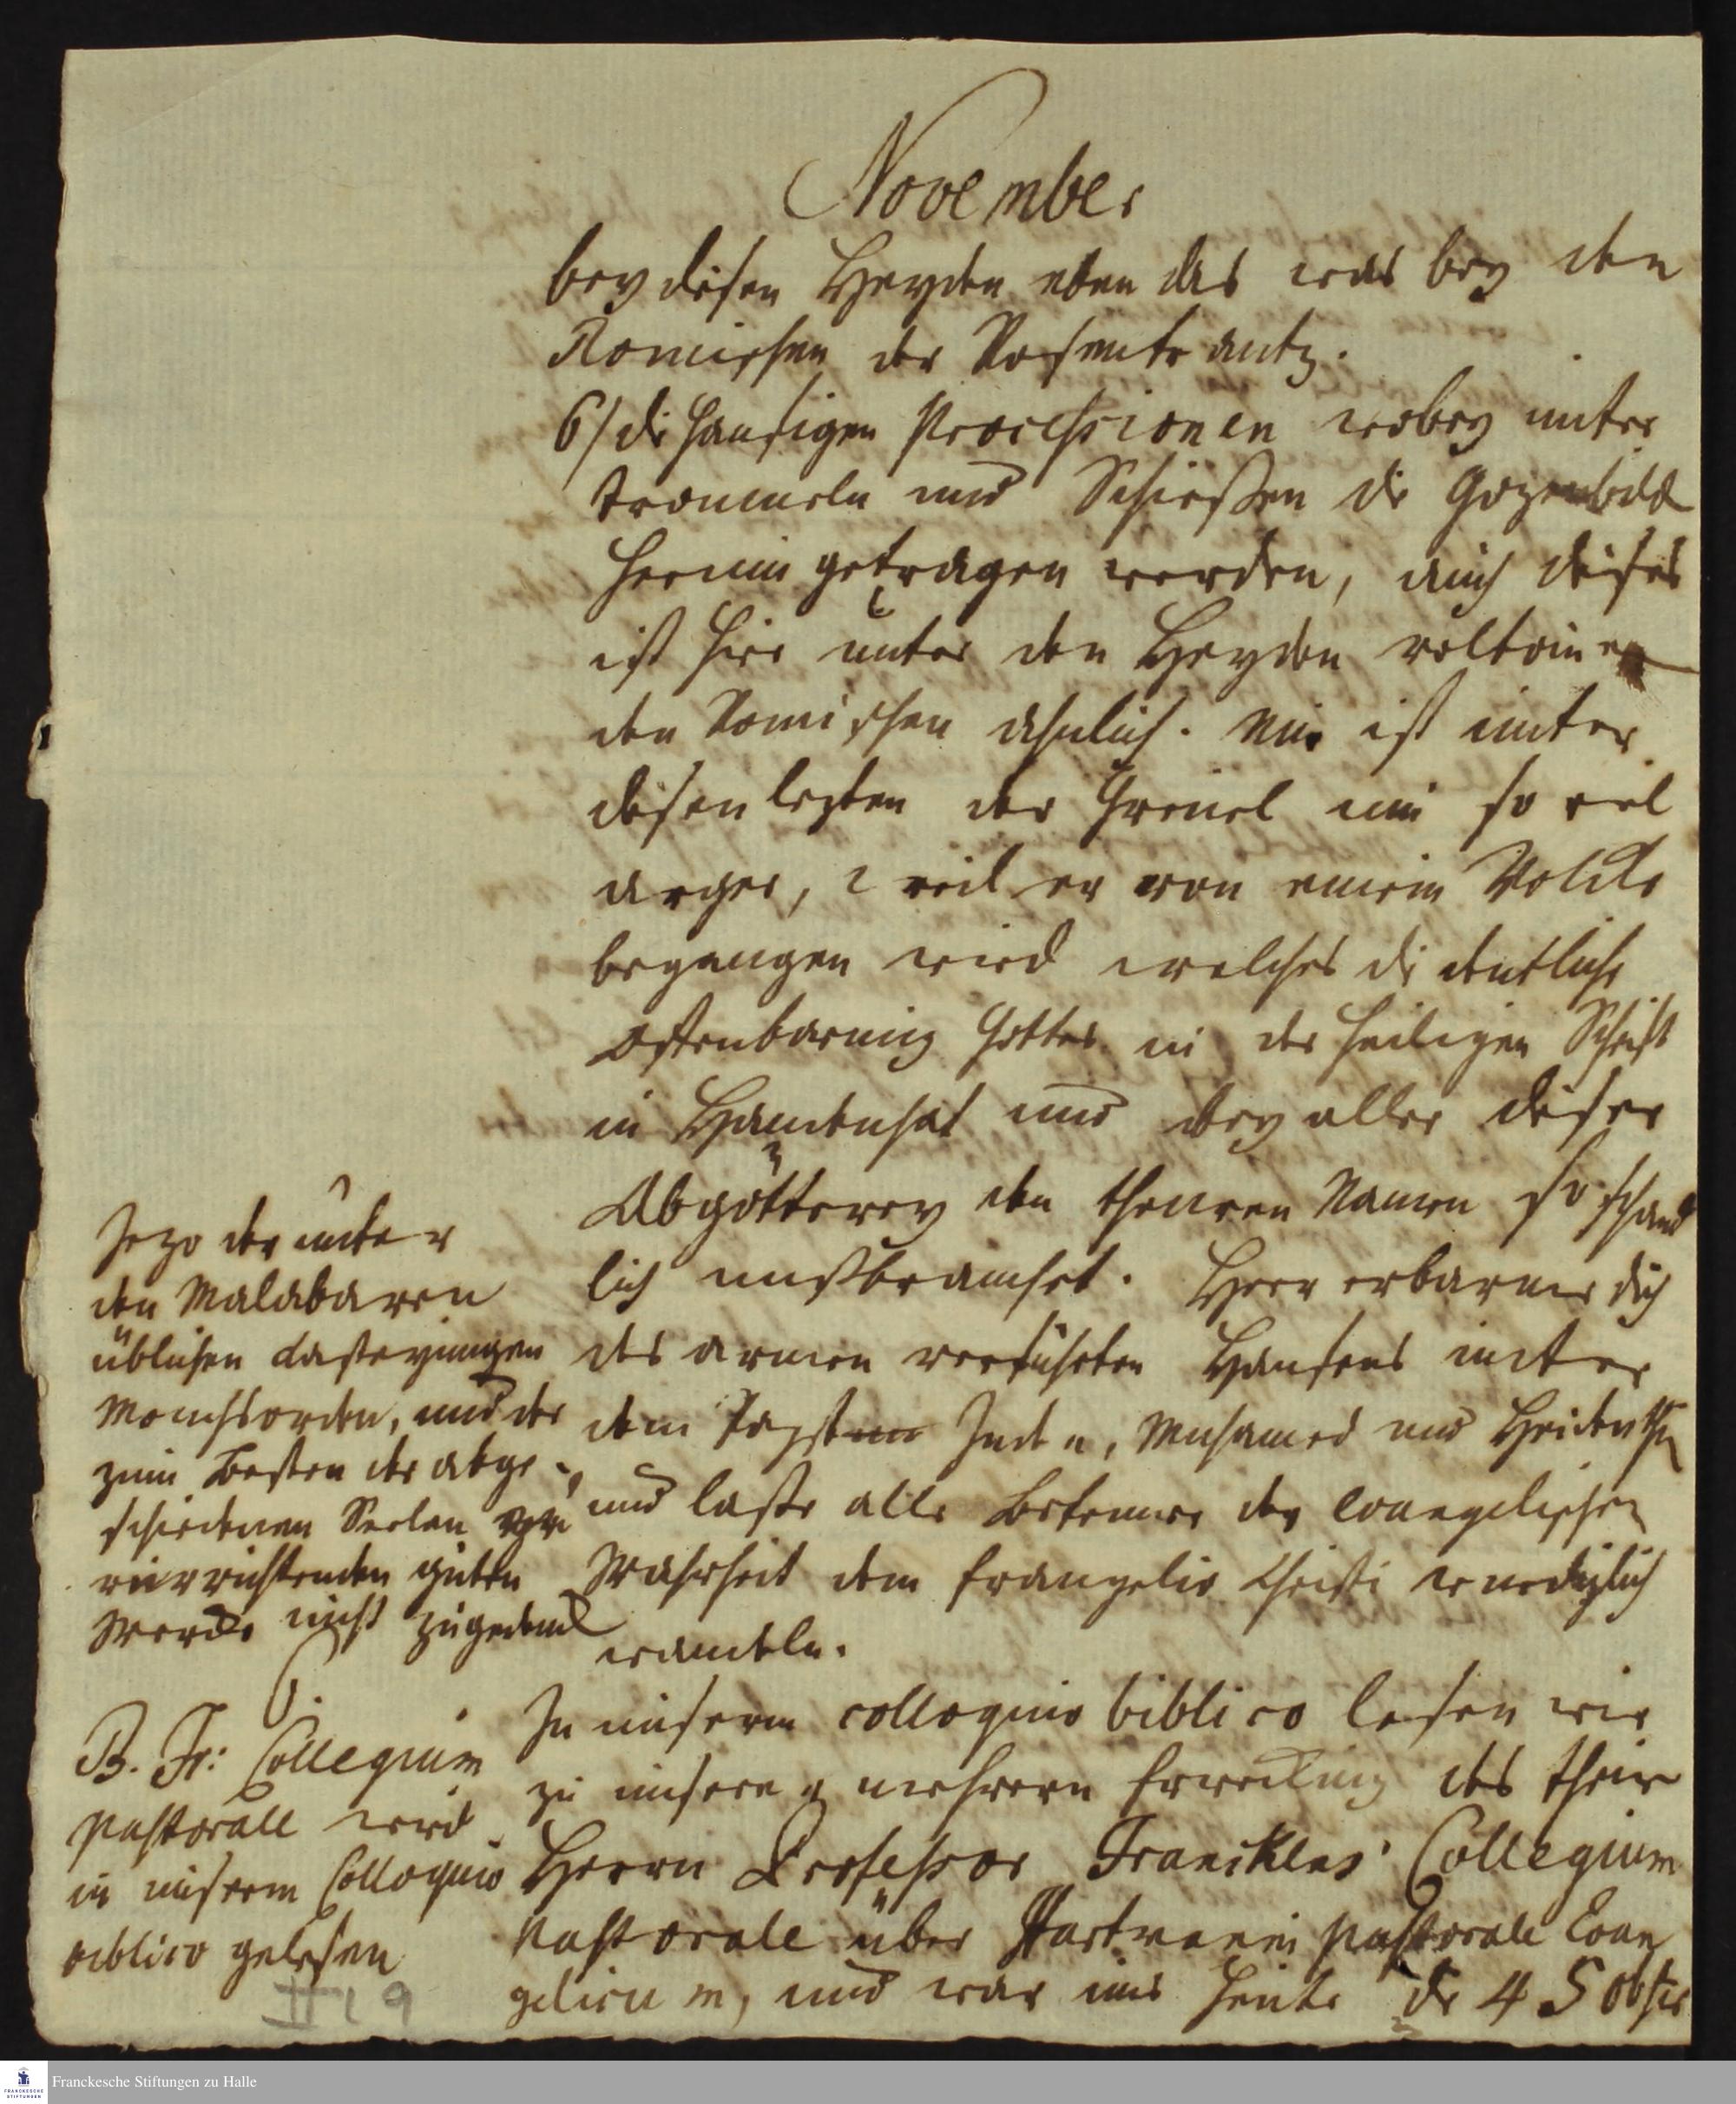 November
bey diesen Heyden eben das was bey den
Romischen der Rosenkrantz.
6/ die haufigen Processionen wobey unter
trommeln und Schießen die Gozenbild
herum getragen werden, auch dieses
ist hier unter den Heyden vollkommen
den Romischen ahnlich. Nur ist unter
diesen lezten der Greuel um so viel
arger, weil er von einem Volcke
begangen wird welches die deutliche
Offenbarung Gottes in der heiligen Schrift
in Handen hat und bey aller dieser
Abgötterey den theuren Namen so schand
lich mißbrauchet. Herr erbarme dich
des armen verführten Haufens unter
dem Papst Juden, Muhamed und Heidenthum
und laße alle Bekenner der Evangelischen
Wahrheit dem Evangelio Christi wurdiglich
wandeln.
In unserm colloquio biblico lesen wir
zu unserer mehrern Erweckung des theur
Herrn Professor Franckens Collegium
pastorale über Hartmanni pastorale Evan
gelicum, und war uns heute die 4 5 obser
Jezo der unter
den Malabaren
üblichen Casteyungen
Monchsorden, und der
zum Besten der abge-
schiedenen Seelen
verrichtenden guten
Wercke nicht zugedenck
B. Fr: Collegium
pastorale wird
in unserm Colloquio
biblico gelesen
II 19
Franckesche Stiftungen zu Halle
FRANCKESCHE
STIFTUNGEN